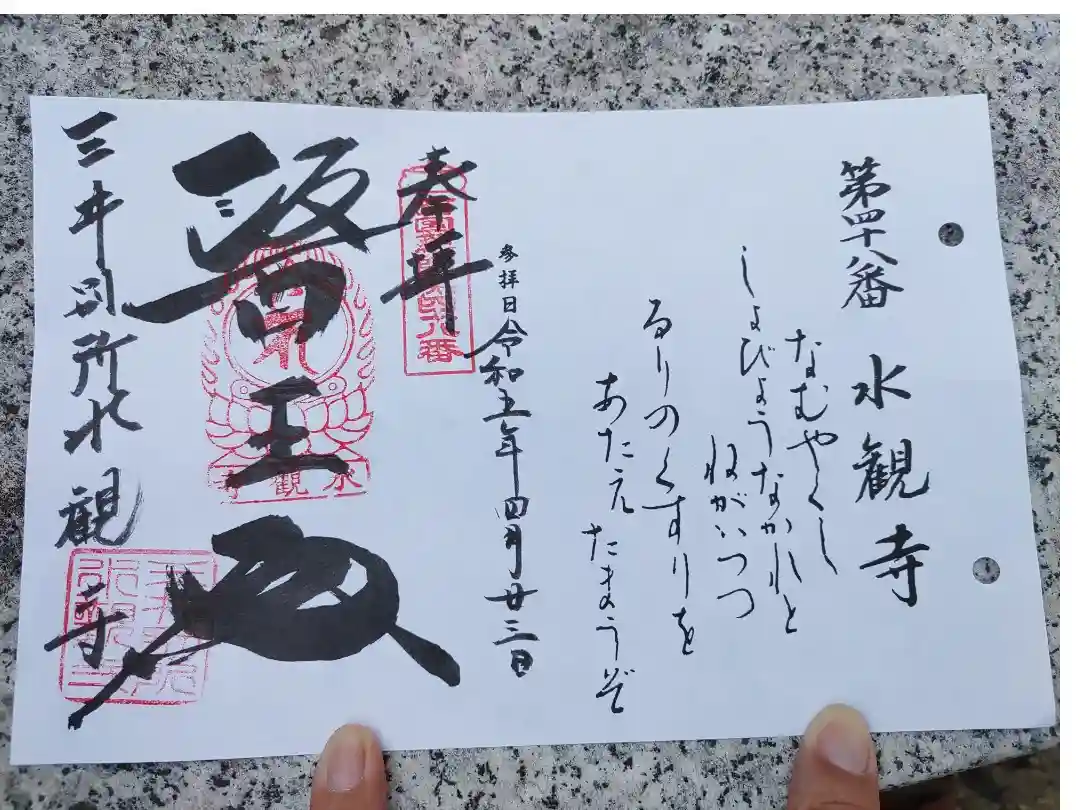 第四十八番 水観寺
なむやくし
しょびょうなかれと
ねがいつつ
るりのくすりを
あたえたまうぞ
奉拝
参拝日令和五年四月廿三日
医王殿
三井別所水観寺
水観寺